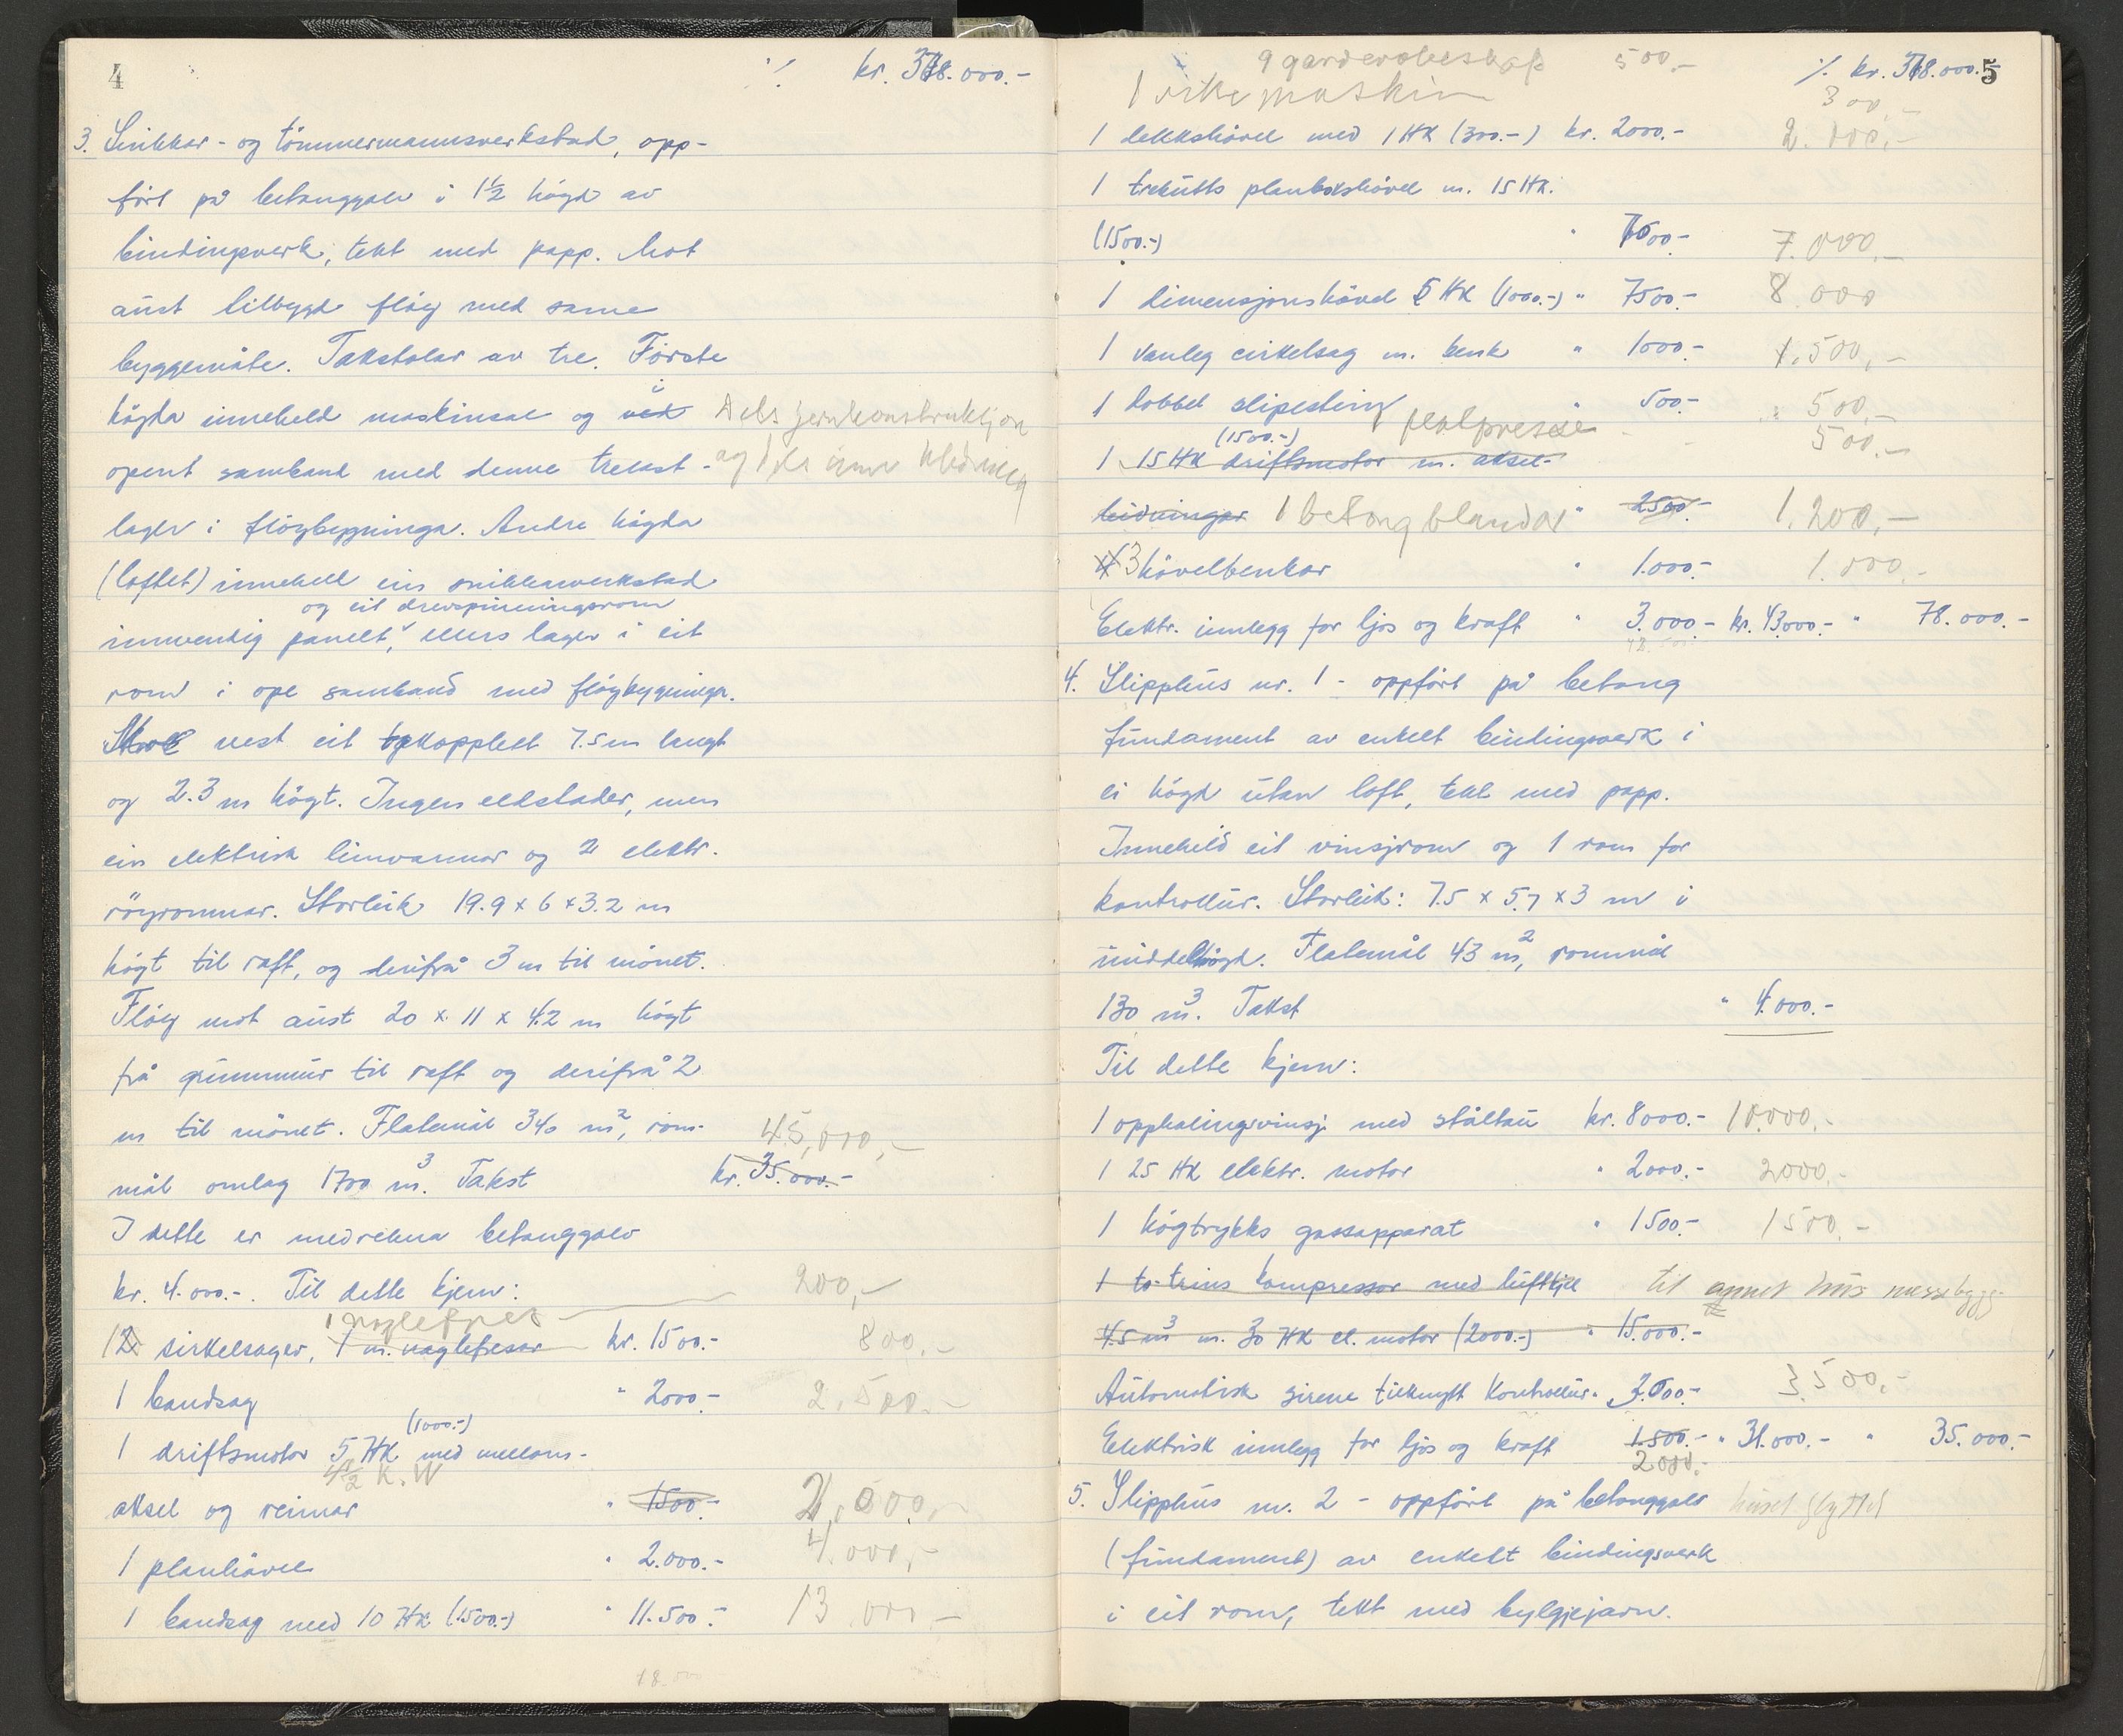 4
./. kr. 378.000.-
3. Snikkar- og tömmermannsverkstad, opp-
fört på betonggolv i 1½ högd av
bindingsverk, tekt med papp. Mot
aust tilbygd flöy med same
byggemåte. Takstolar av tre. Förste
högda inneheld maskinsal og i Dels jernkonstruksjon
opent samband med denne trelast- og dels innv kledning
lager i flöybygninga. Andre högda
(loftet) inneheld ein snikkarverkstad
og eit drevspinningsrom
innvendig panelt, ellers lager i eit
rom i ope samband med flöybygninga.
Mot vest eit takopplett 7.5 m langt
og 2.3 m högt. Ingen eldstader, men
ein elektrisk limvarmar og 2 elektr.
röyromnar. Storleik 19.9 x 6 x 3.2 m
högt til raft, og derifrå 3 m til mönet.
Flöy mot aust 20 x 11 x 4.2 m högt
frå grunnmur til raft og derifrå 2
m til mönet. Flatemål 340 m², rom- 45,000,-
mål omlag 1700 m³. Takst kr. 35.000.-
I dette er medrekna betonggolv
kr. 4.000.-. Til dette kjem: 200,-
1 naglefres
12 sirkelsager, 1 m. naglefresar kr. 1500.- 800,-
1 bandsag " 2000.- 2.500.-
(1000.-)
1 driftsmotor 5 HK med mellom-
4½ K.W
aksel og reimar " 1500.- 2.000,-
1 planhövel " 2.000.- 4.000,-
1 bandsag med 10 HK (1500.-) " 11.500.- 13 000 -
18.000
9 garderobeskap 500.- ./. kr. 378.000.- 5
1 maskin 300,-
1 dekkshövel med 1 HK (300.-) kr. 2000.- 2.000,-
1 trekutts plankehövel m. 15 HK.
(1500.-) " 7500.- 7.000,-
1 dimensjonshövel 5 HK (1000.-) " 7500.- 8.000
1 vanleg cirkelsag m. benk " 1000.- 1.500,-
1 dobbel slipestein " 500.- 500.-
1 pealpresse 500.-
(1500.-)
1 15 HK driftsmotor m. aksel-
leidningar 1 betong blandar " 2500.- 1.200,-
4 3 hövelbenkar " 1.000.- 1.000,-
Elektr. innlegg for ljos og kraft " 3.000.- kr. 43.000.- " 78.000.-
4. Slipphus nr. 1 - oppfört på betong
fundament av enkelt bindingsverk i
ei högd utan loft, tekt med papp.
Inneheld eit vinsjrom og 1 rom for
kontrollur. Storleik: 7.5 x 5.7 x 3 m i
middelhögd. Flatemål 43 m², rommål
130 m³. Takst " 4.000.-
Til dette kjem:
1 opphalingsvinsj med ståltau kr. 8000.- 10.000.-
1 25 HK elektr. motor " 2000.- 2000.-
1 högtrykks gassapparat " 1500.- 1500.-
1 to-trins kompressor med luftkjel til annet hus
4.5 m³ m. 30 HK el. motor (2000.-) " 15.000.-
Automatisk sirene tilknytt kontrollur " 3.000.- 3.500,-
Elektrisk innlegg for ljos og kraft 1.500.- " 31.000.- " 35.000.-
2000.-
5. Slipphus nr. 2 - oppfört på betonggolv huset flyttet
(fundament) av enkelt bindingsverk
i eit rom, tekt med bylgjejarn.